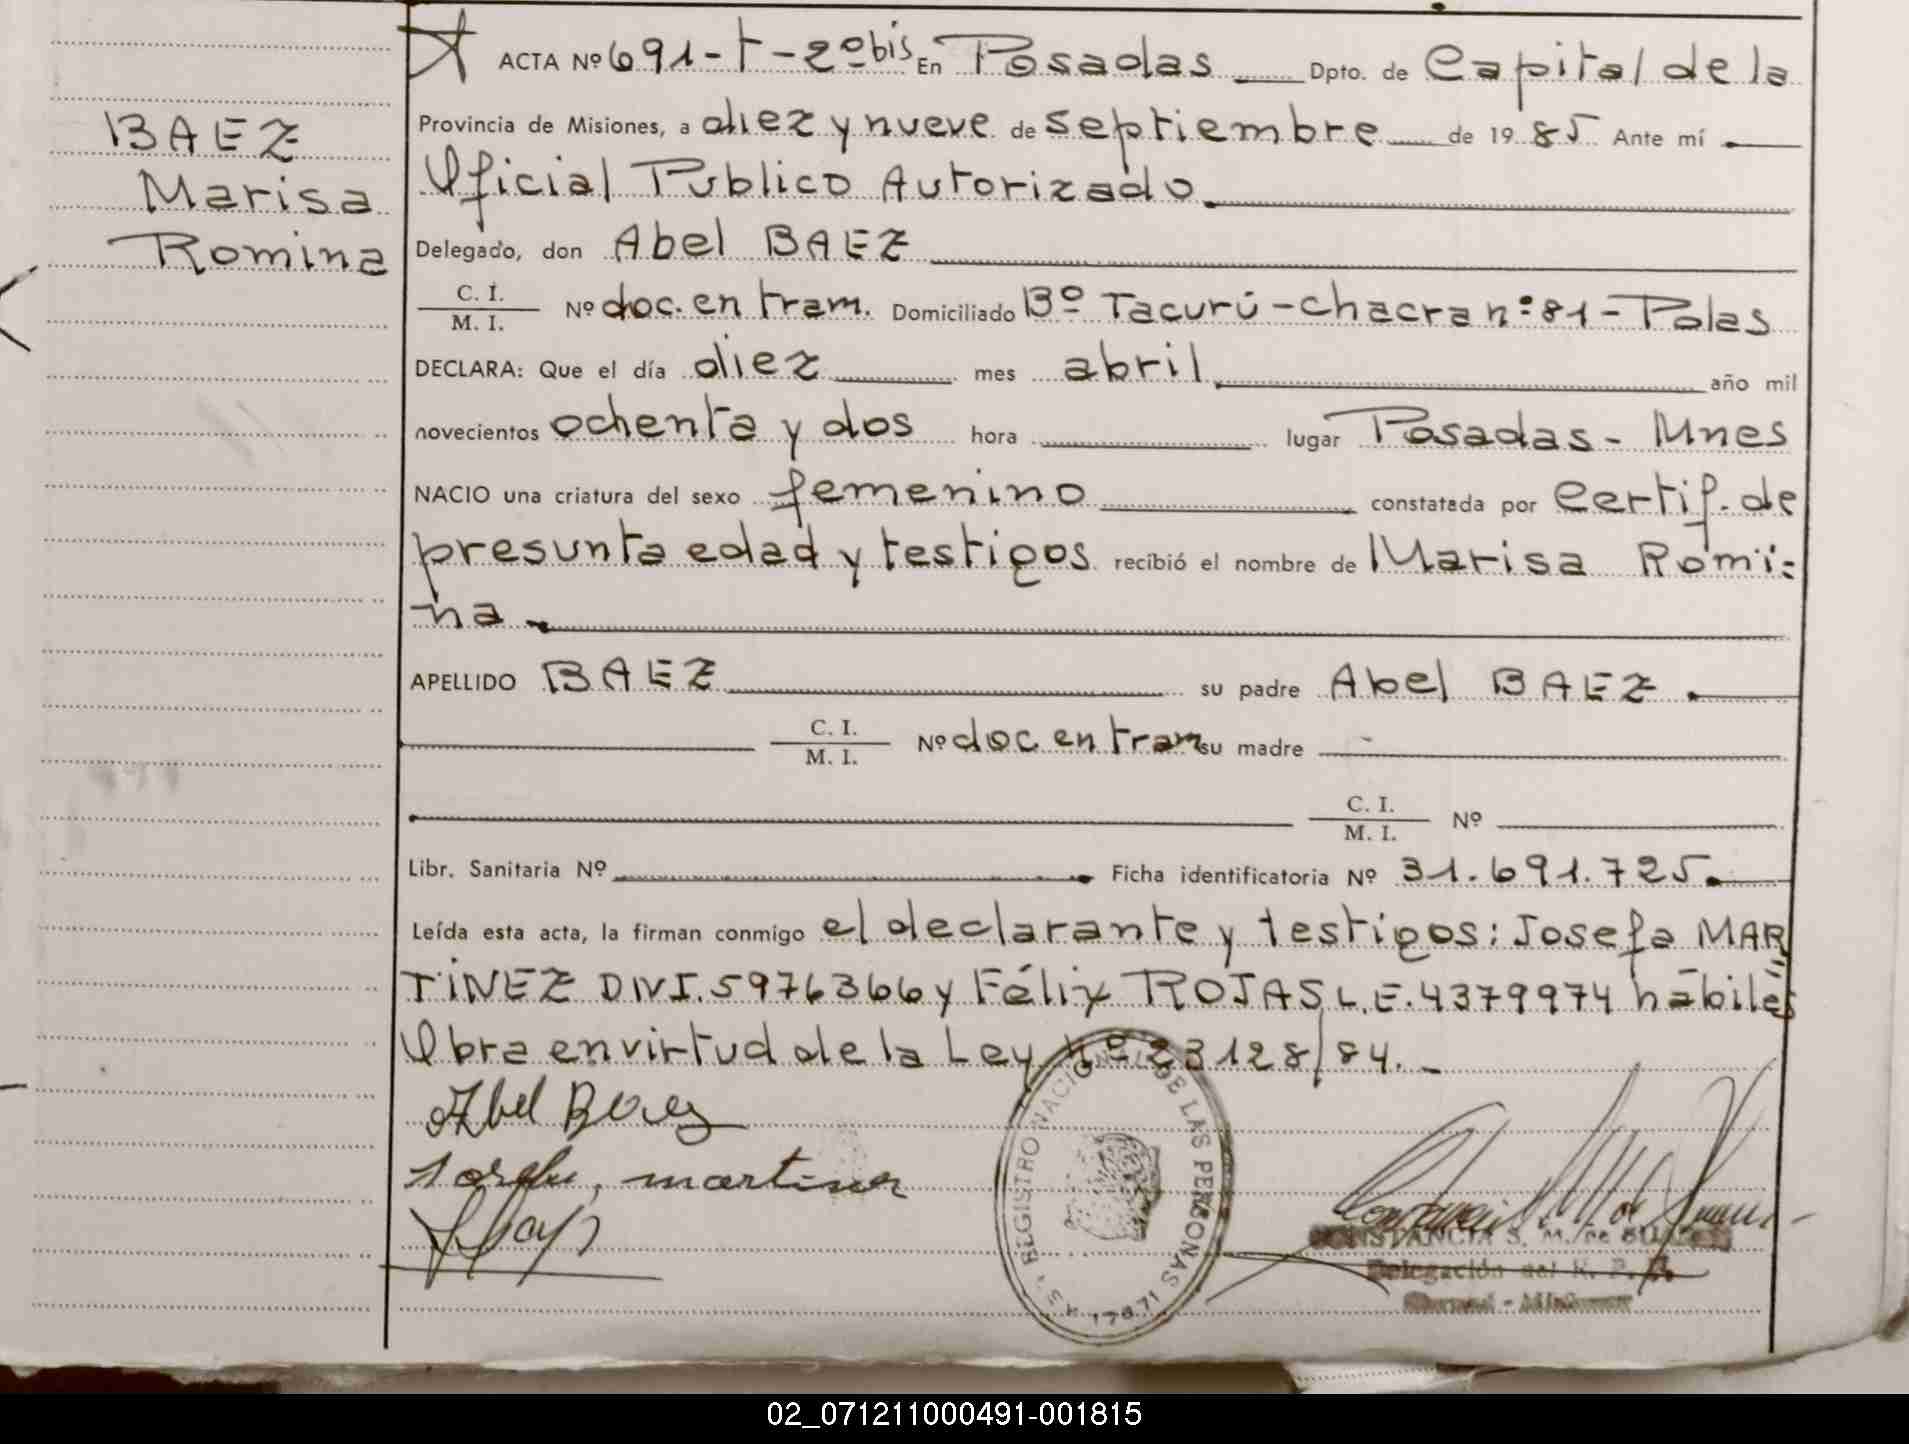 ACTA Nº 691-T-2º bis En Posadas Dpto. de Capital de la
BAEZ
Marisa
Romina
Provincia de Misiones, a diez y nueve de septiembre de 1985 Ante mí
Oficial Publico Autorizado
Delegado, don Abel BAEZ
C. I.
M. I. Nº doc. en tram. Domiciliado Bº Tacurú - chacra nº 81 - Pdas
DECLARA: Que el día diez mes abril año mil
novecientos ochenta y dos hora lugar Posadas - Mnes
NACIO una criatura del sexo femenino constatada por Certif. de
presunta edad y testigos recibió el nombre de Marisa Romi=
na
APELLIDO BAEZ su padre Abel BAEZ
C. I.
M. I. Nº doc en tram su madre
C. I.
M. I. Nº
Libr. Sanitaria Nº Ficha identificatoria Nº 31.691.725.
Leída esta acta, la firman conmigo el declarante y testigos: Josefa MAR=
TINEZ DNI. 5976366 y Félix ROJAS L.E. 4379974 hábiles
Obra en virtud de la Ley Nº 23128/84.-
Abel Baez
martinez
REGISTRO NACIONAL DE LAS PERSONAS
CONSTANCIA S. M. de
Delegación del R. P.
02_071211000491-001815